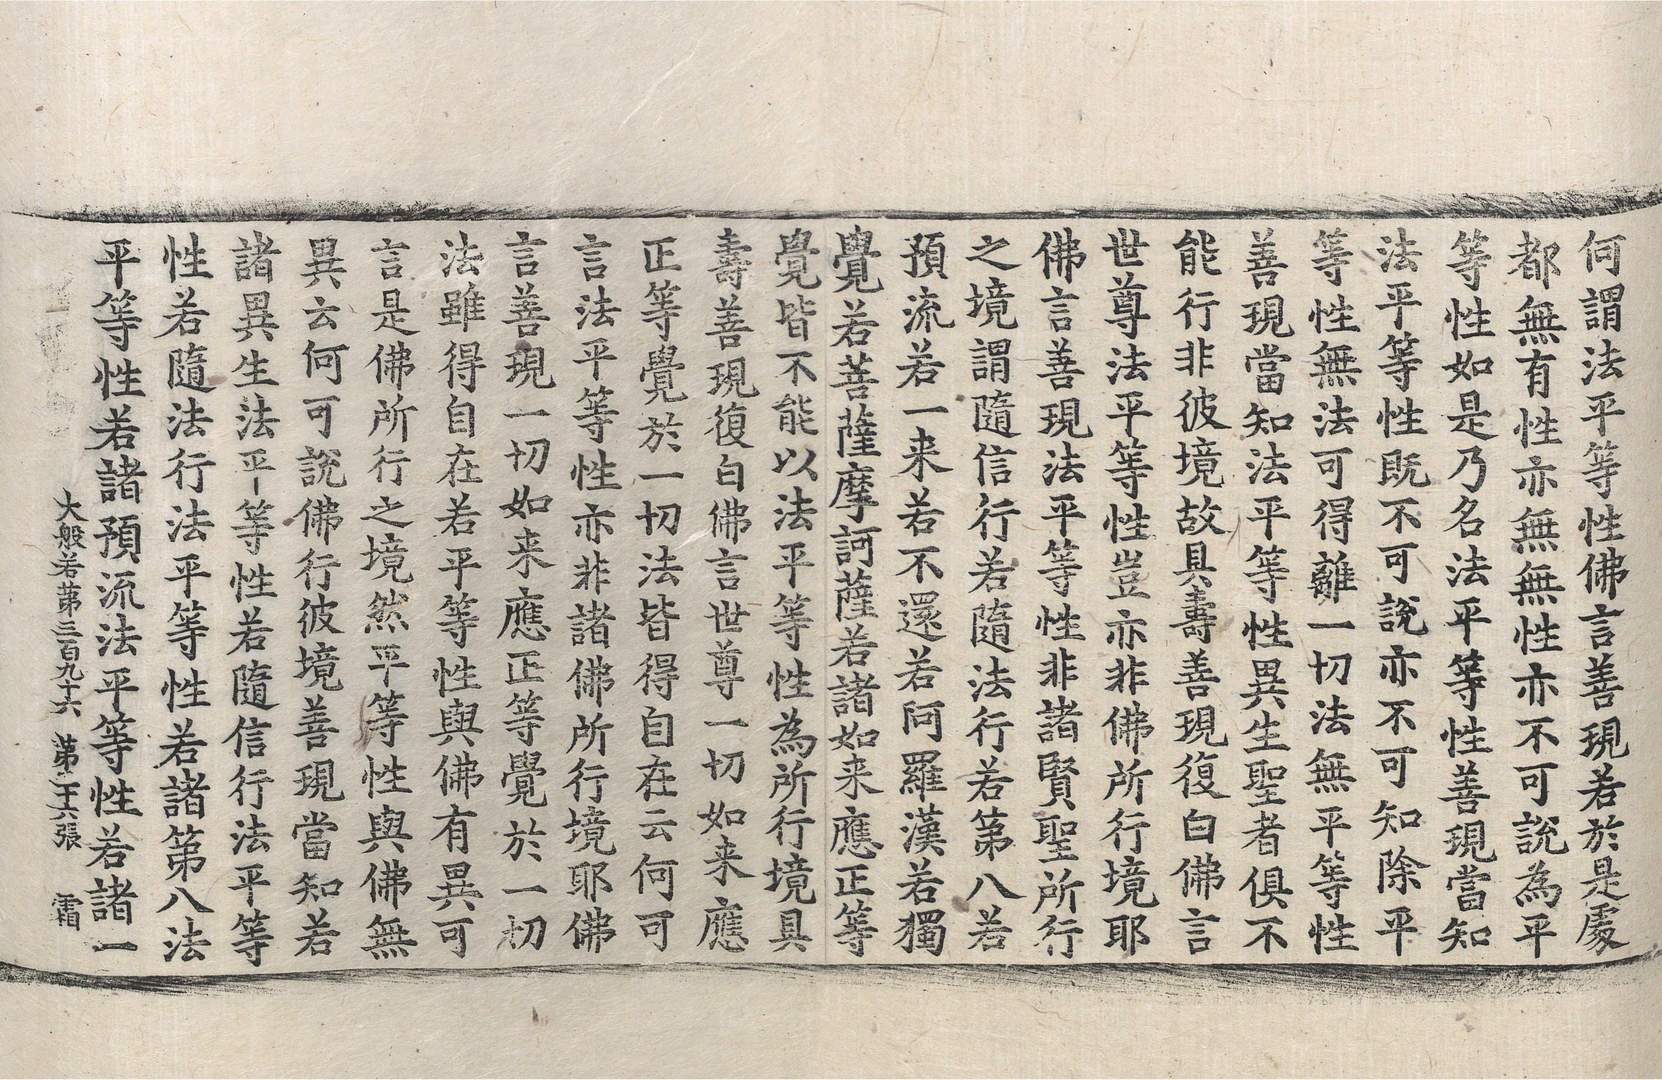 何謂法平等性佛言善現若於是處
都無有性亦無無性亦不可說為平
等性如是乃名法平等性善現當知
法平等性既不可說亦不可知除平
等性無法可得離一切法無平等性
善現當知法平等性異生聖者俱不
能行非彼境故具壽善現復白佛言
世尊法平等性豈亦非佛所行境耶
佛言善現法平等性非諸賢聖所行
之境謂隨信行若隨法行若第八若
預流若一来若不還若阿羅漢若獨
覺若菩薩摩訶薩若諸如来應正等
覺皆不能以法平等性為所行境具
壽善現復白佛言世尊一切如来應
正等覺於一切法皆得自在云何可
言法平等性亦非諸佛所行境耶佛
言善現一切如来應正等覺於一切
法雖得自在若平等性與佛有異可
言是佛所行之境然平等性與佛無
異云何可說佛行彼境善現當知若
諸異生法平等性若隨信行法平等
性若隨法行法平等性若諸第八法
平等性若諸預流法平等性若諸一
大般若第三百九十六 第二十六張 霜